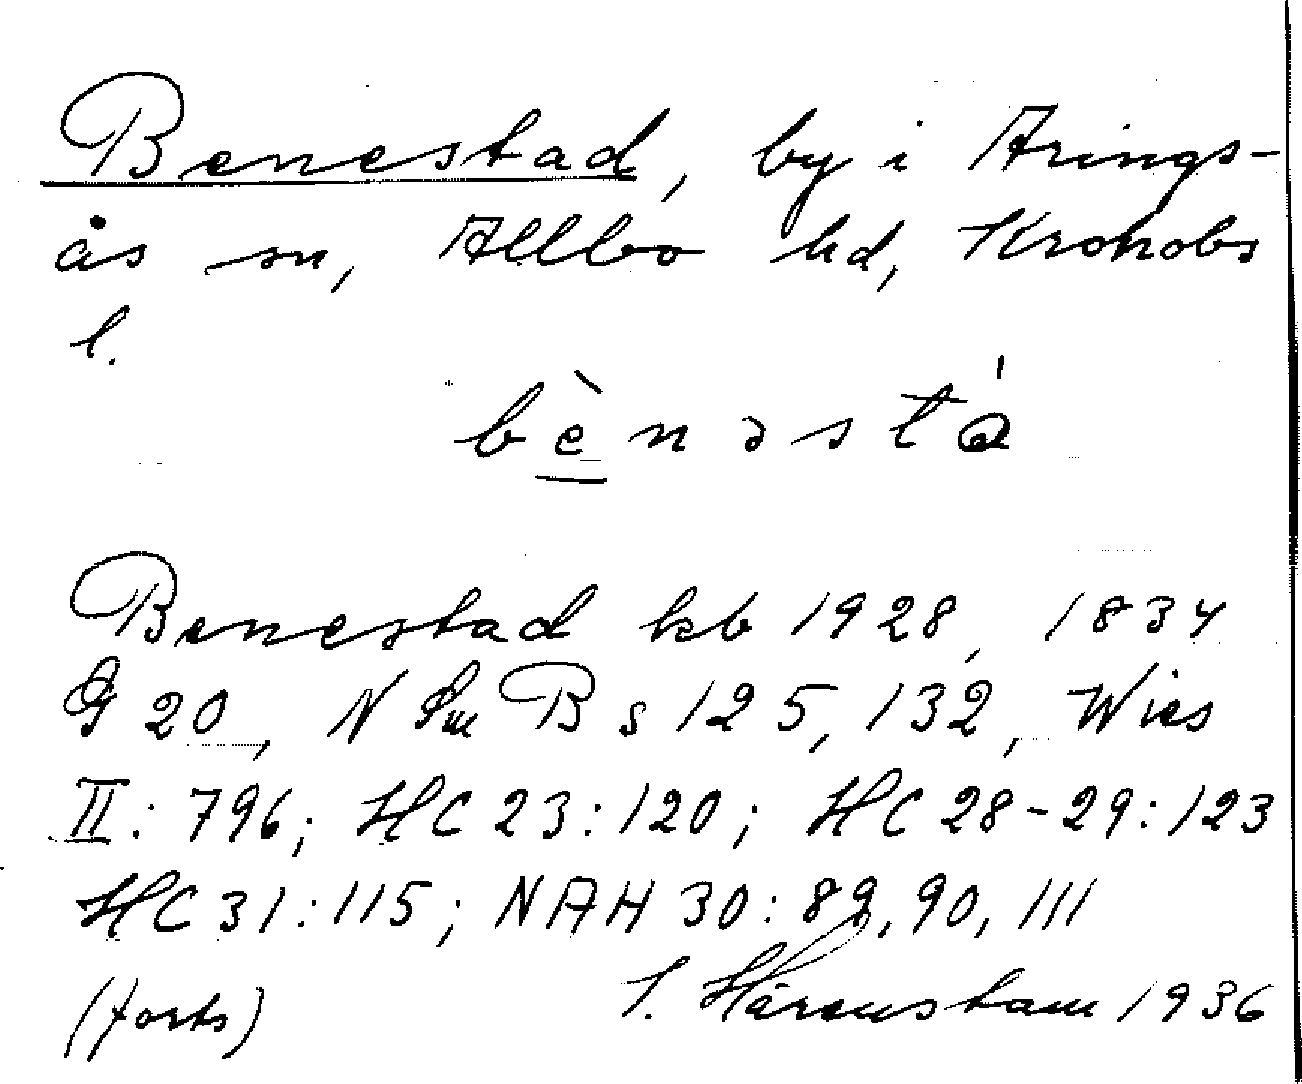 Benestad, by i Arings-
ås sn, Allbo hd, Kronobs
l.
bènəstá
Benestad kb 1928, 1834
G 20, N Sm B s 125, 132, Wies
II: 796; HC 23:120; HC 28-29:123
HC 31:115; NAH 30:89,90, 111
(forts) S. Härenstam 1936